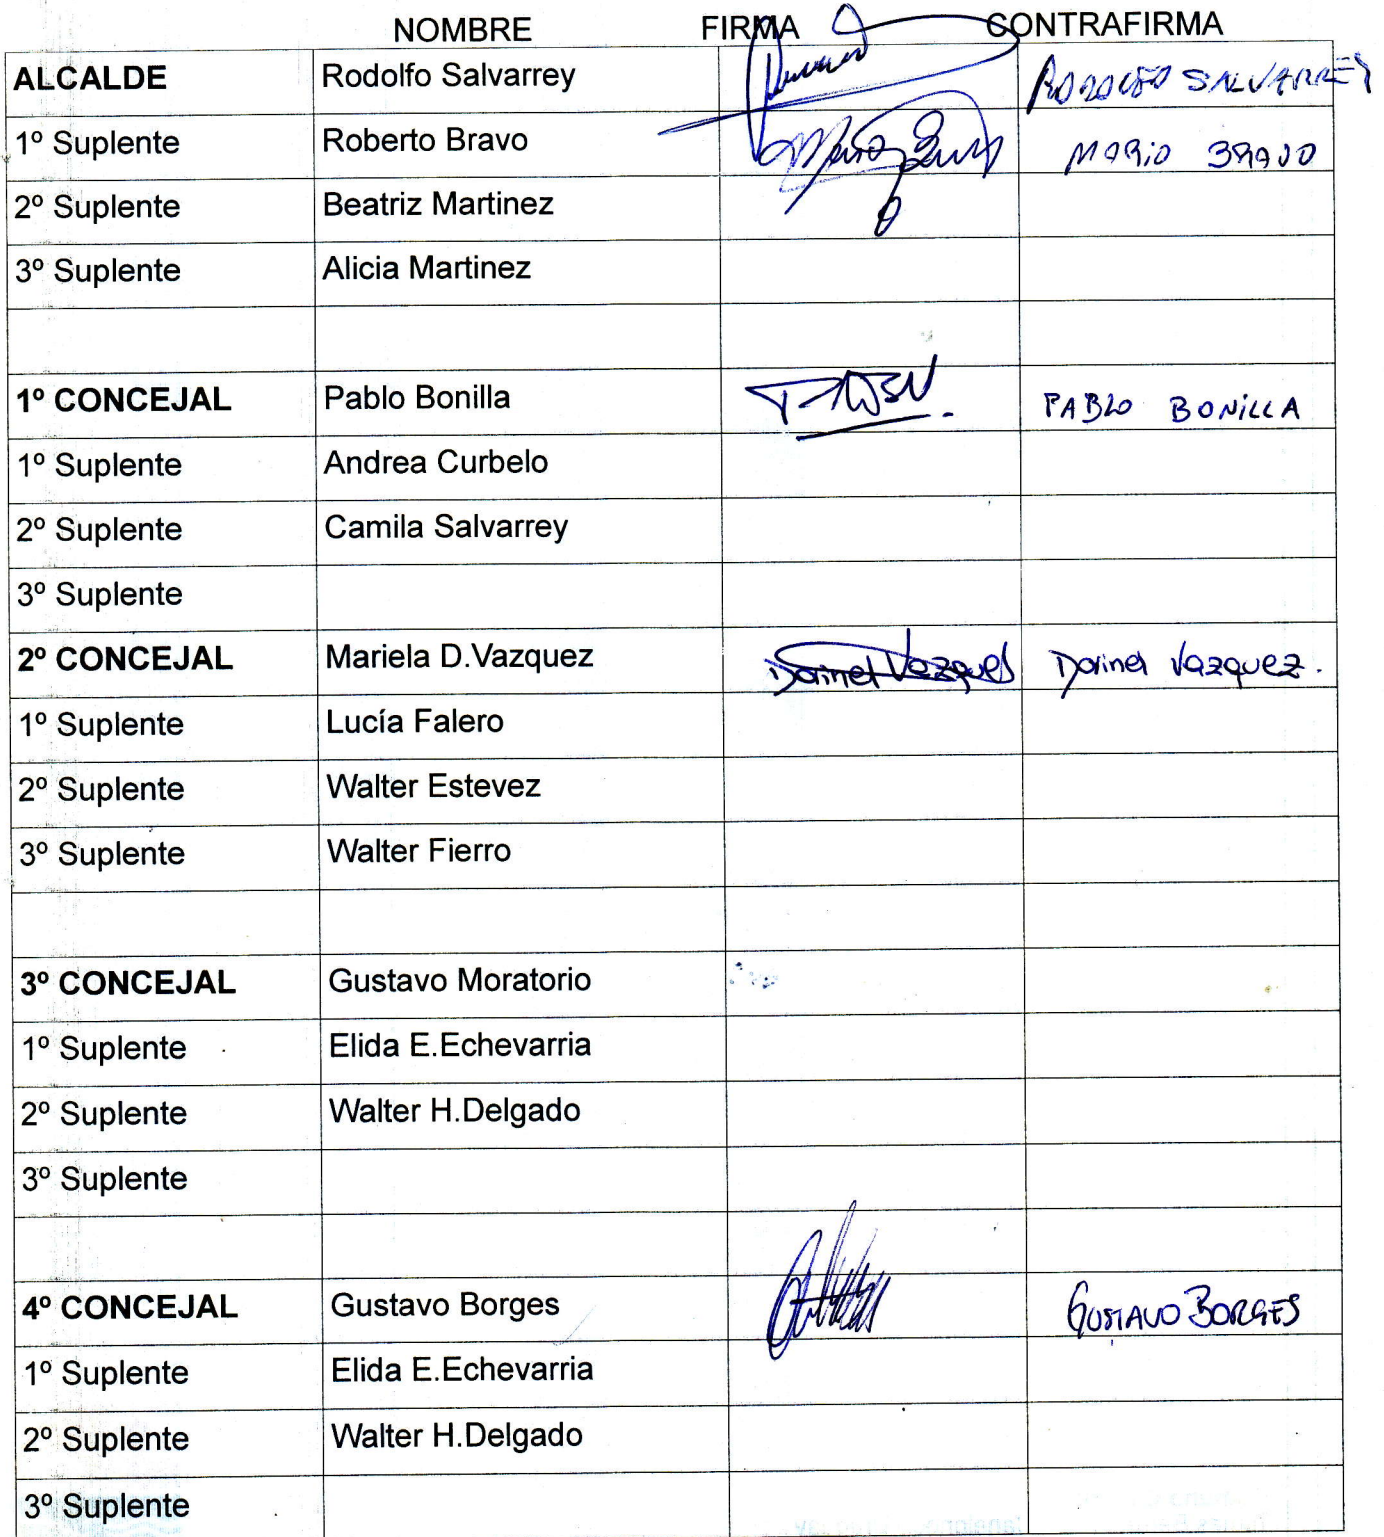 NOMBRE FIRMA CONTRAFIRMA
ALCALDE Rodolfo Salvarrey RODOLFO SALVARREY
1º Suplente Roberto Bravo MARIO BRAVO
2º Suplente Beatriz Martinez
3º Suplente Alicia Martinez
1º CONCEJAL Pablo Bonilla PABLO BONILLA
1º Suplente Andrea Curbelo
2º Suplente Camila Salvarrey
3º Suplente
2º CONCEJAL Mariela D.Vazquez Dorinel Vazquez Dorinel Vazquez.
1º Suplente Lucía Falero
2º Suplente Walter Estevez
3º Suplente Walter Fierro
3º CONCEJAL Gustavo Moratorio
1º Suplente Elida E.Echevarria
2º Suplente Walter H.Delgado
3º Suplente
4º CONCEJAL Gustavo Borges GUSTAVO BORGES
1º Suplente Elida E.Echevarria
2º Suplente Walter H.Delgado
3º Suplente